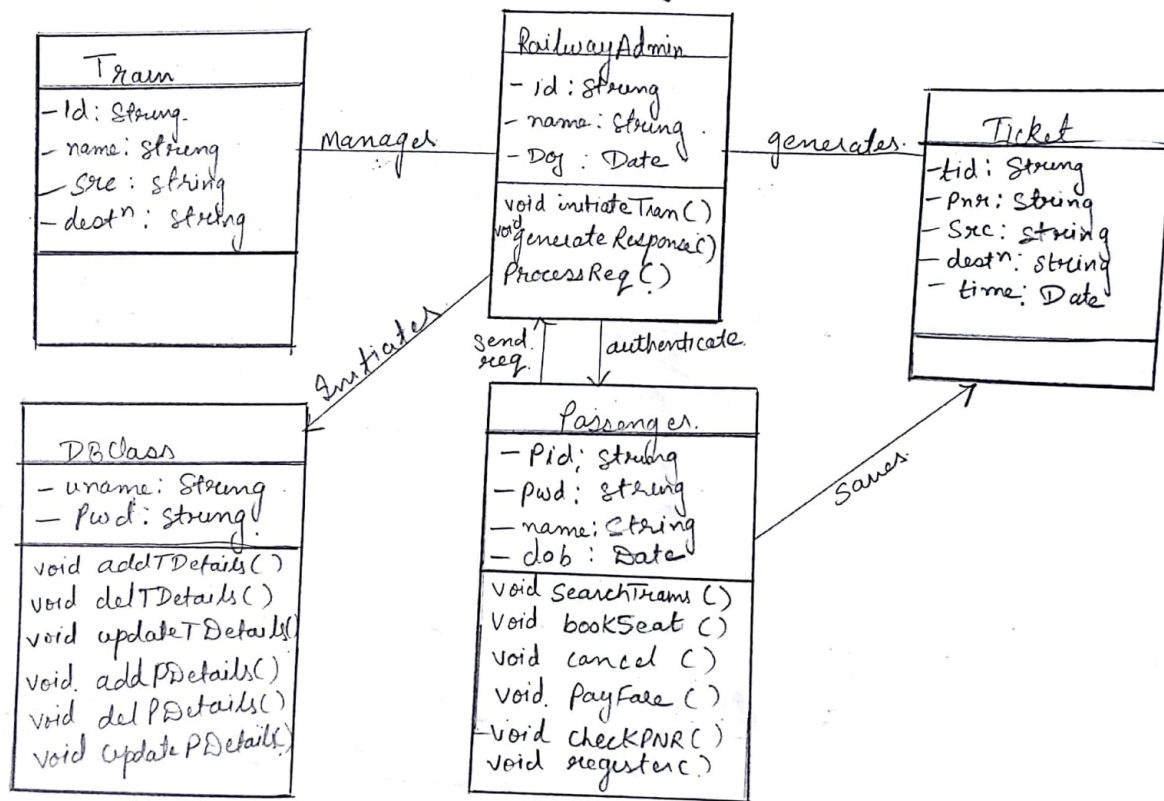 Train
- Id: String
- name: String
- Src: String
- destⁿ: String
manages
RailwayAdmin
- id: String
- name: String
- Doj: Date
void initiateTran()
void generateResponse()
ProcessReq()
generates
Ticket
- tid: String
- Pnr: String
- Src: String
- destⁿ: String
- time: Date
Initiates
send
req.
authenticate
DBClass
- uname: String
- Pwd: String
void addTDetails()
void delTDetails()
void updateTDetails()
void addPDetails()
void delPDetails()
void updatePDetails()
Passenger
- Pid: String
- Pwd: String
- name: String
- dob: Date
void SearchTrains()
void bookSeat()
void cancel()
void PayFare()
void checkPNR()
void register()
saves